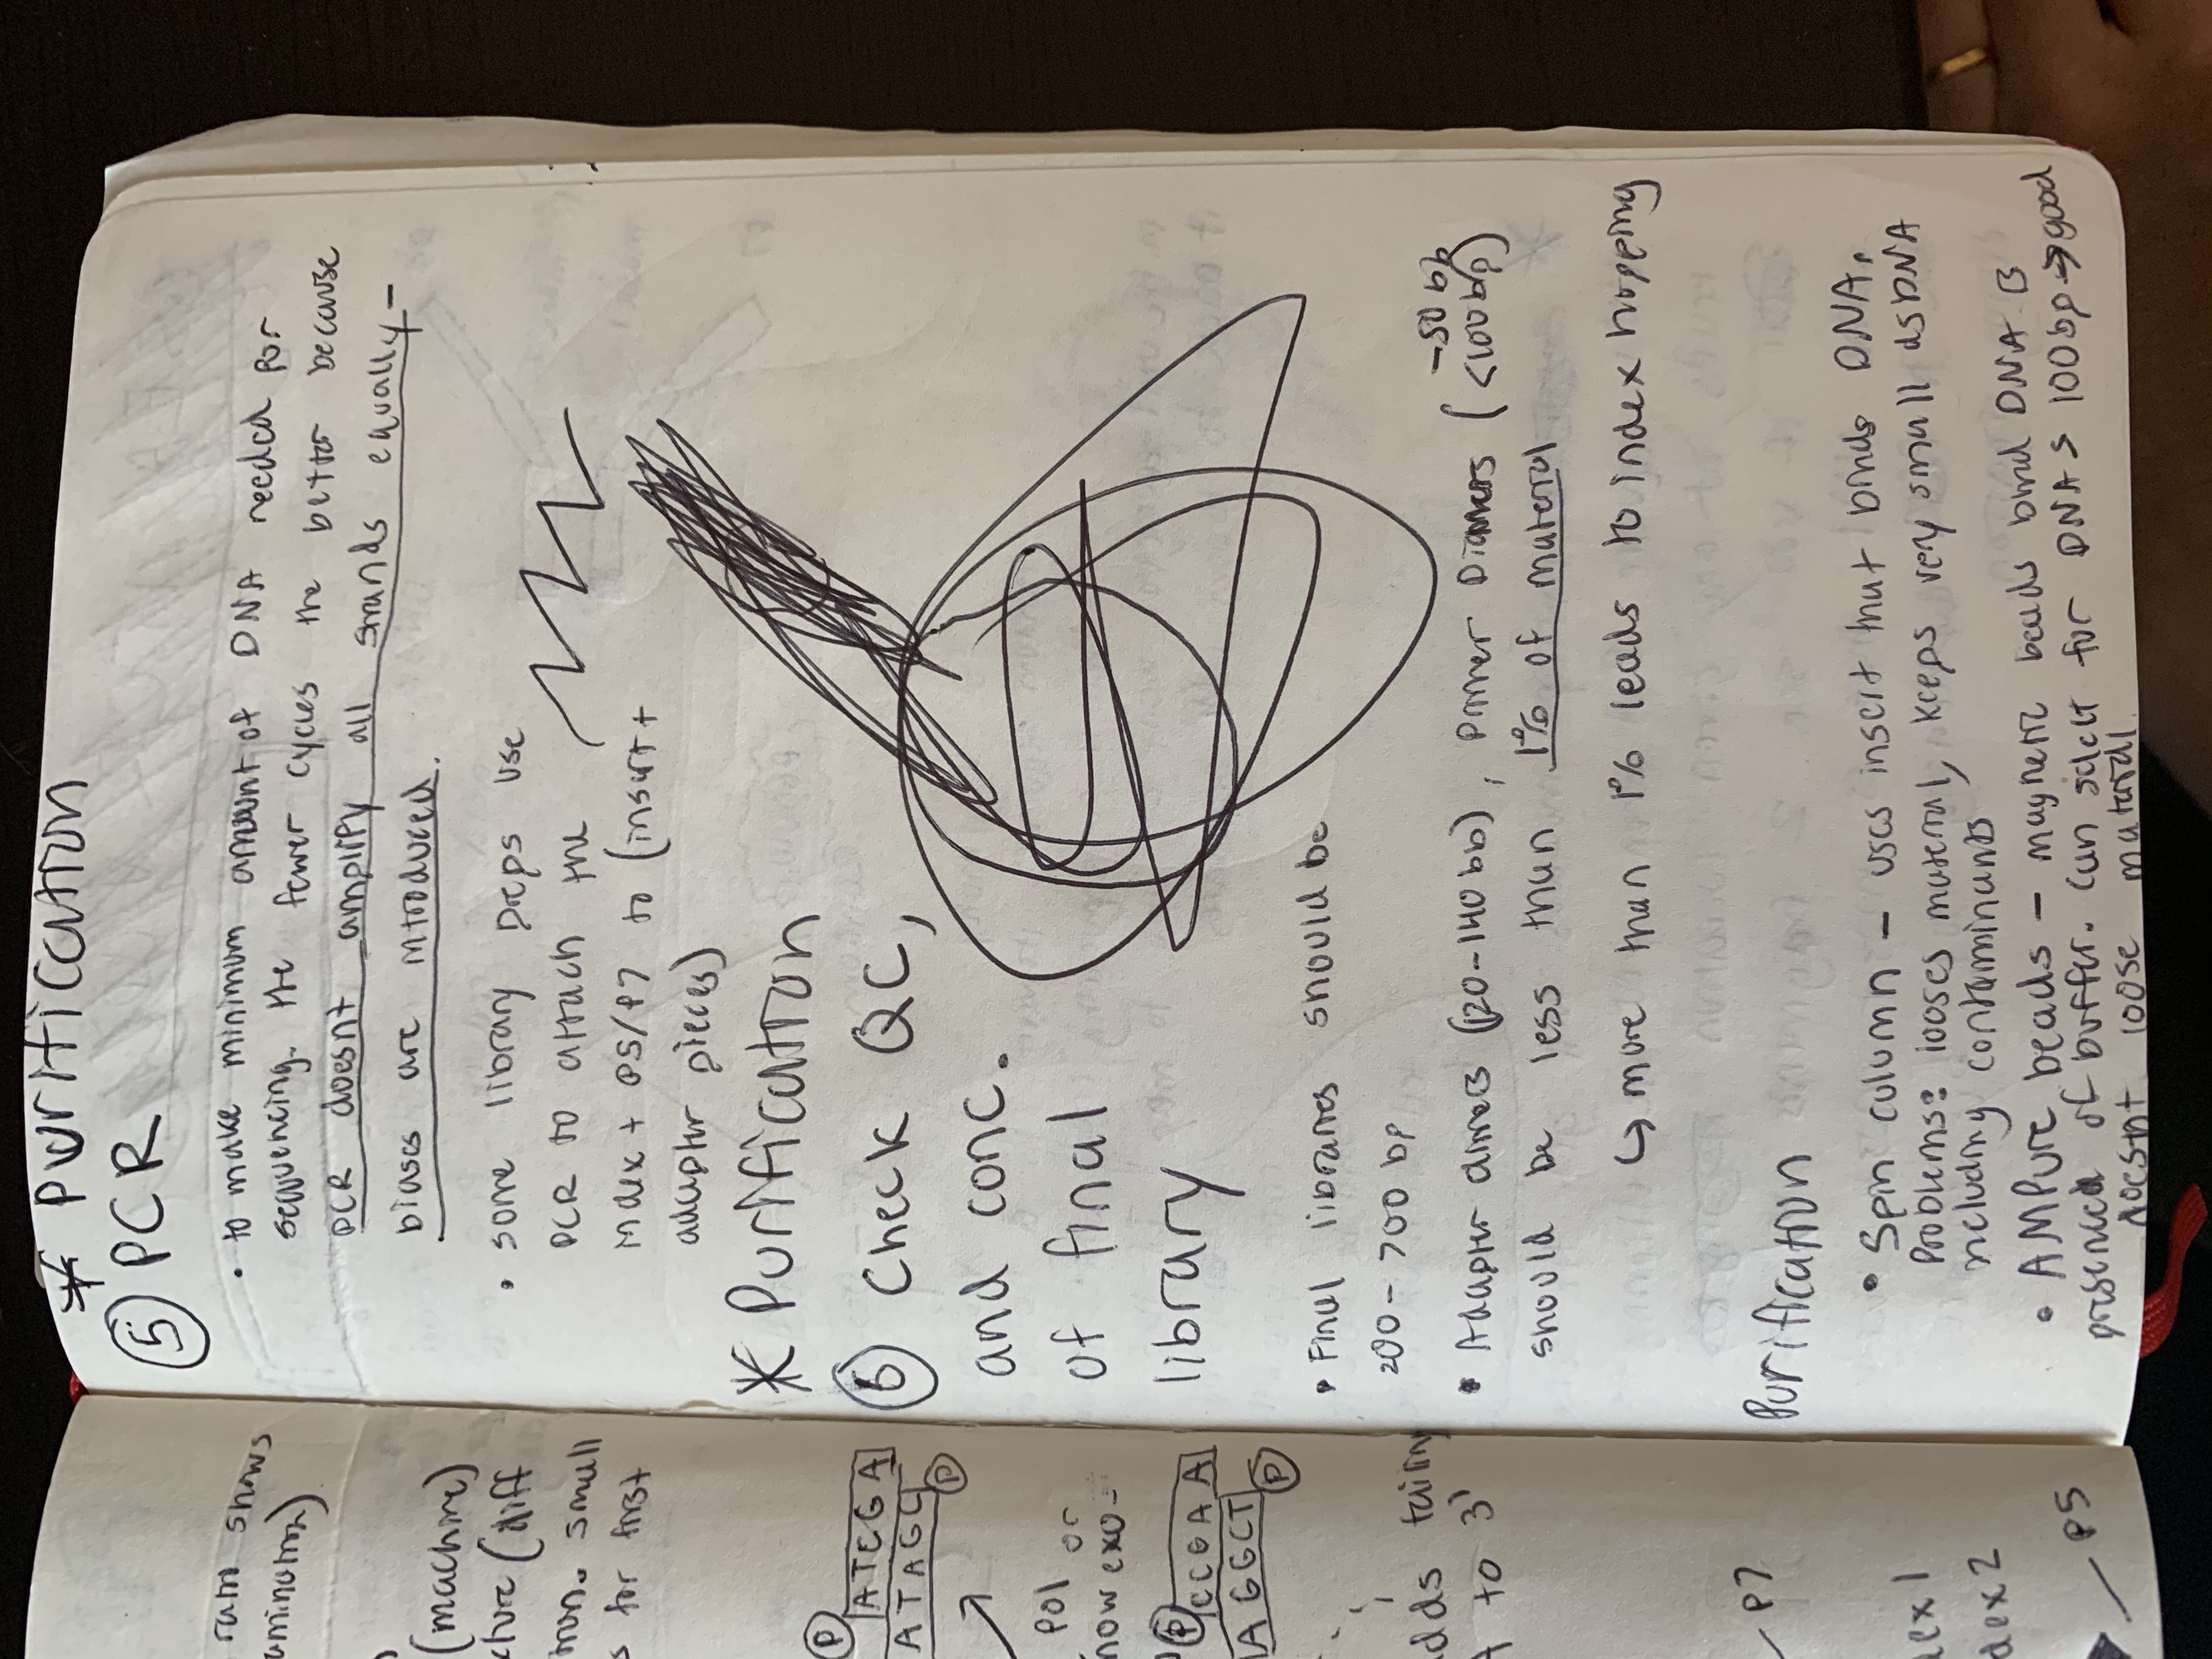 ratio shows
(machine)
(diff
small
for first
P
ATCGA
ATAGC
P
Pol or
now exo-
P
CCGAA
AGGCT
P
adds tailing
A to 3'
P7
dex 1
dex 2
P5
* Purification
5 PCR
• to make minimum amount of DNA needed for
sequencing. The fewer cycles the better because
PCR doesnt amplify all strands equally -
biases are introduced.
• some library preps use
PCR to attach the
index + P5/P7 to (insert +
adapter pieces)
* Purification
6 Check QC,
and conc.
of final
library
• Final libraries should be
200 - 700 bp
-50 bb
• Adapter dimers (120-140 bb), Primer Dimers (<100bp)
should be less than 1% of material
↳ more than 1% leads to index hopping
Purification
• Spin column - uses insert that binds DNA.
Problems: looses material, keeps very small dsDNA
including contaminants
• AMPure beads - magnetic beads bind DNA
of buffer. can select for DNA > 100bp → good
doesnt loose material.